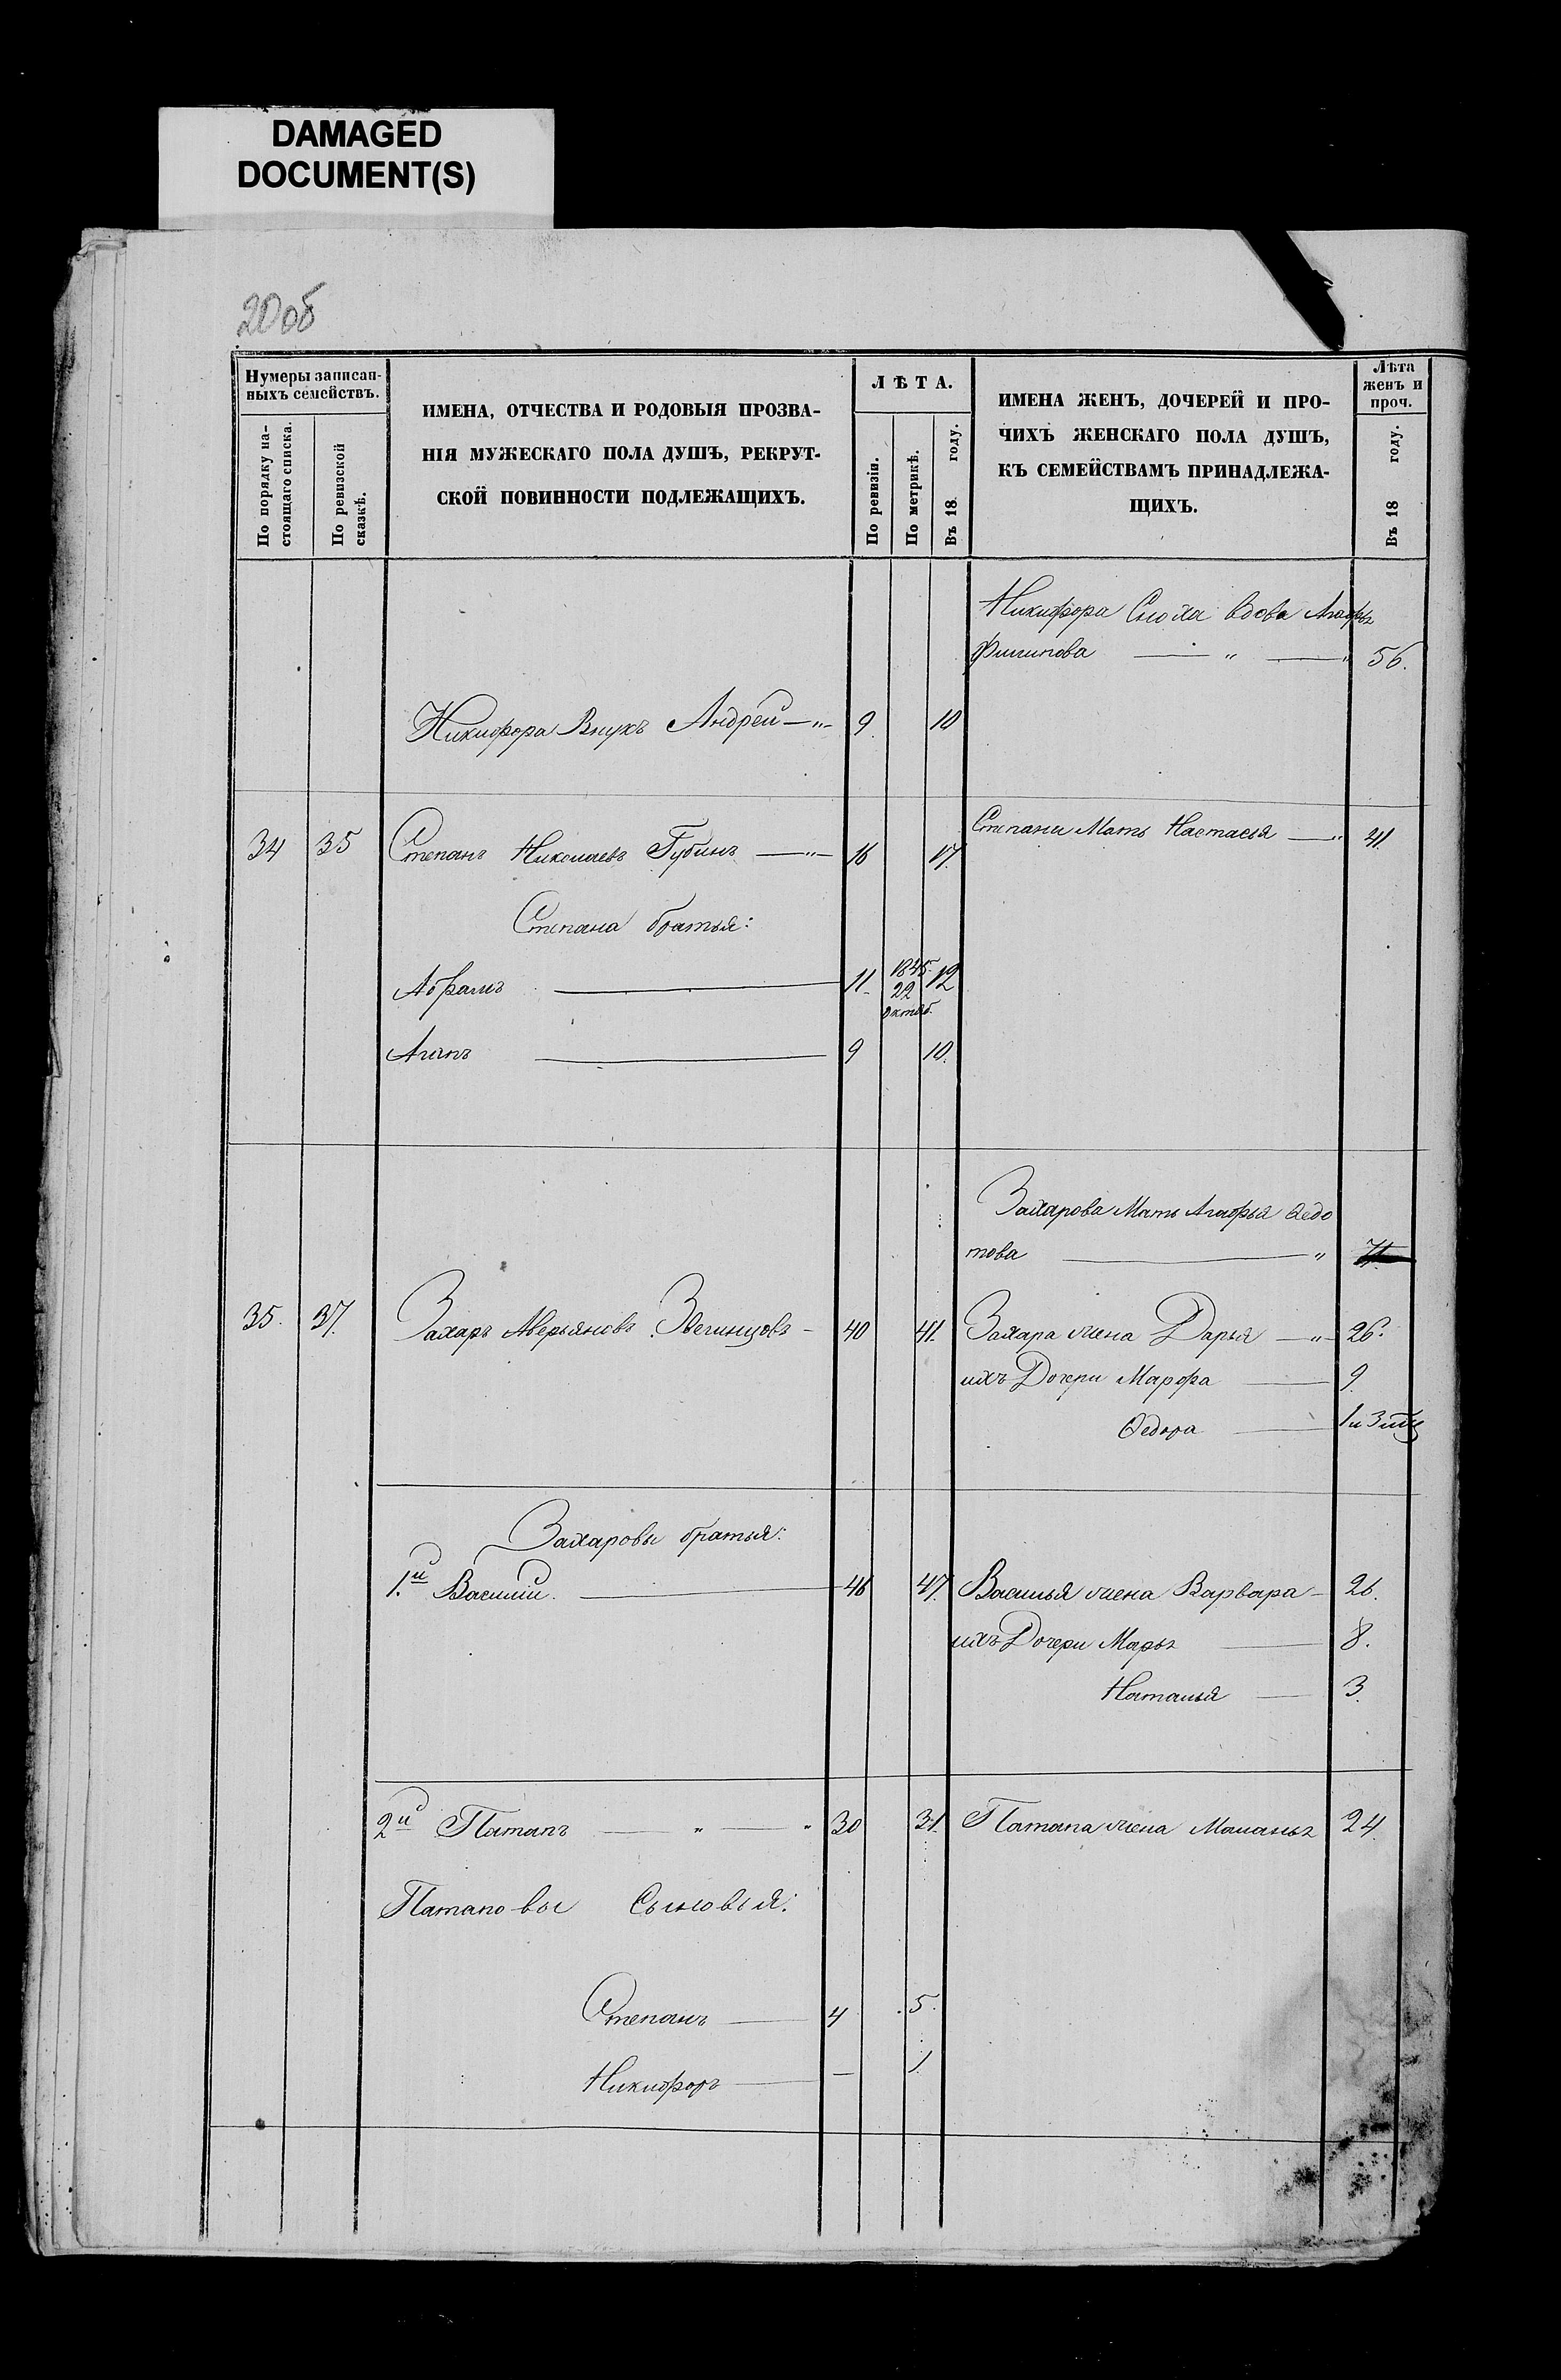 DAMAGED
DOCUMENT(S)
20об
Нумеры записан-
ныхъ семействъ.
По порядку на-
стоящаго списка.
По ревизской
сказкѣ.
ИМЕНА, ОТЧЕСТВА И РОДОВЫЯ ПРОЗВА-
НІЯ МУЖЕСКАГО ПОЛА ДУШЪ, РЕКРУТ-
СКОЙ ПОВИННОСТИ ПОДЛЕЖАЩИХЪ.
ЛѢТА.
По ревизіи.
По метрикѣ.
Въ 18 году.
ИМЕНА ЖЕНЪ, ДОЧЕРЕЙ И ПРО-
ЧИХЪ ЖЕНСКАГО ПОЛА ДУШЪ,
КЪ СЕМЕЙСТВАМЪ ПРИНАДЛЕЖА-
ЩИХЪ.
Лѣта
женъ и
проч.
Въ 18 году.
Никифора Сноха вдова
56.
Никифора Внукъ Андрей —„— 9. 10
34 35 Степанъ Николаевъ Губинъ —„— 16 17. Степана Мать Настасья —„ 41.
Степана братья:
Абрамъ — 11 1845. 22 октяб. 12
Агапъ — 9 10.
Захарова Мать Агафья Ѳедо
това — „ 71
35. 37. Захаръ Аверьяновъ Звегинцовъ — 40 41. Захара жена Дарья —„— 26.
ихъ Дочери Марфа — 9.
Ѳедора — 1 и 3 мѣс
Захаровы братья:
1.й Василий. — 46 47. Василья жена Варвара — 26.
ихъ Дочери Марья — 8.
Наталья — 3.
2й Патапъ — „ — „ 30 31. Патапа жена Маланья 24.
Патаповы Сыновья:
Степанъ — 4 5.
Никифоръ — — 1.